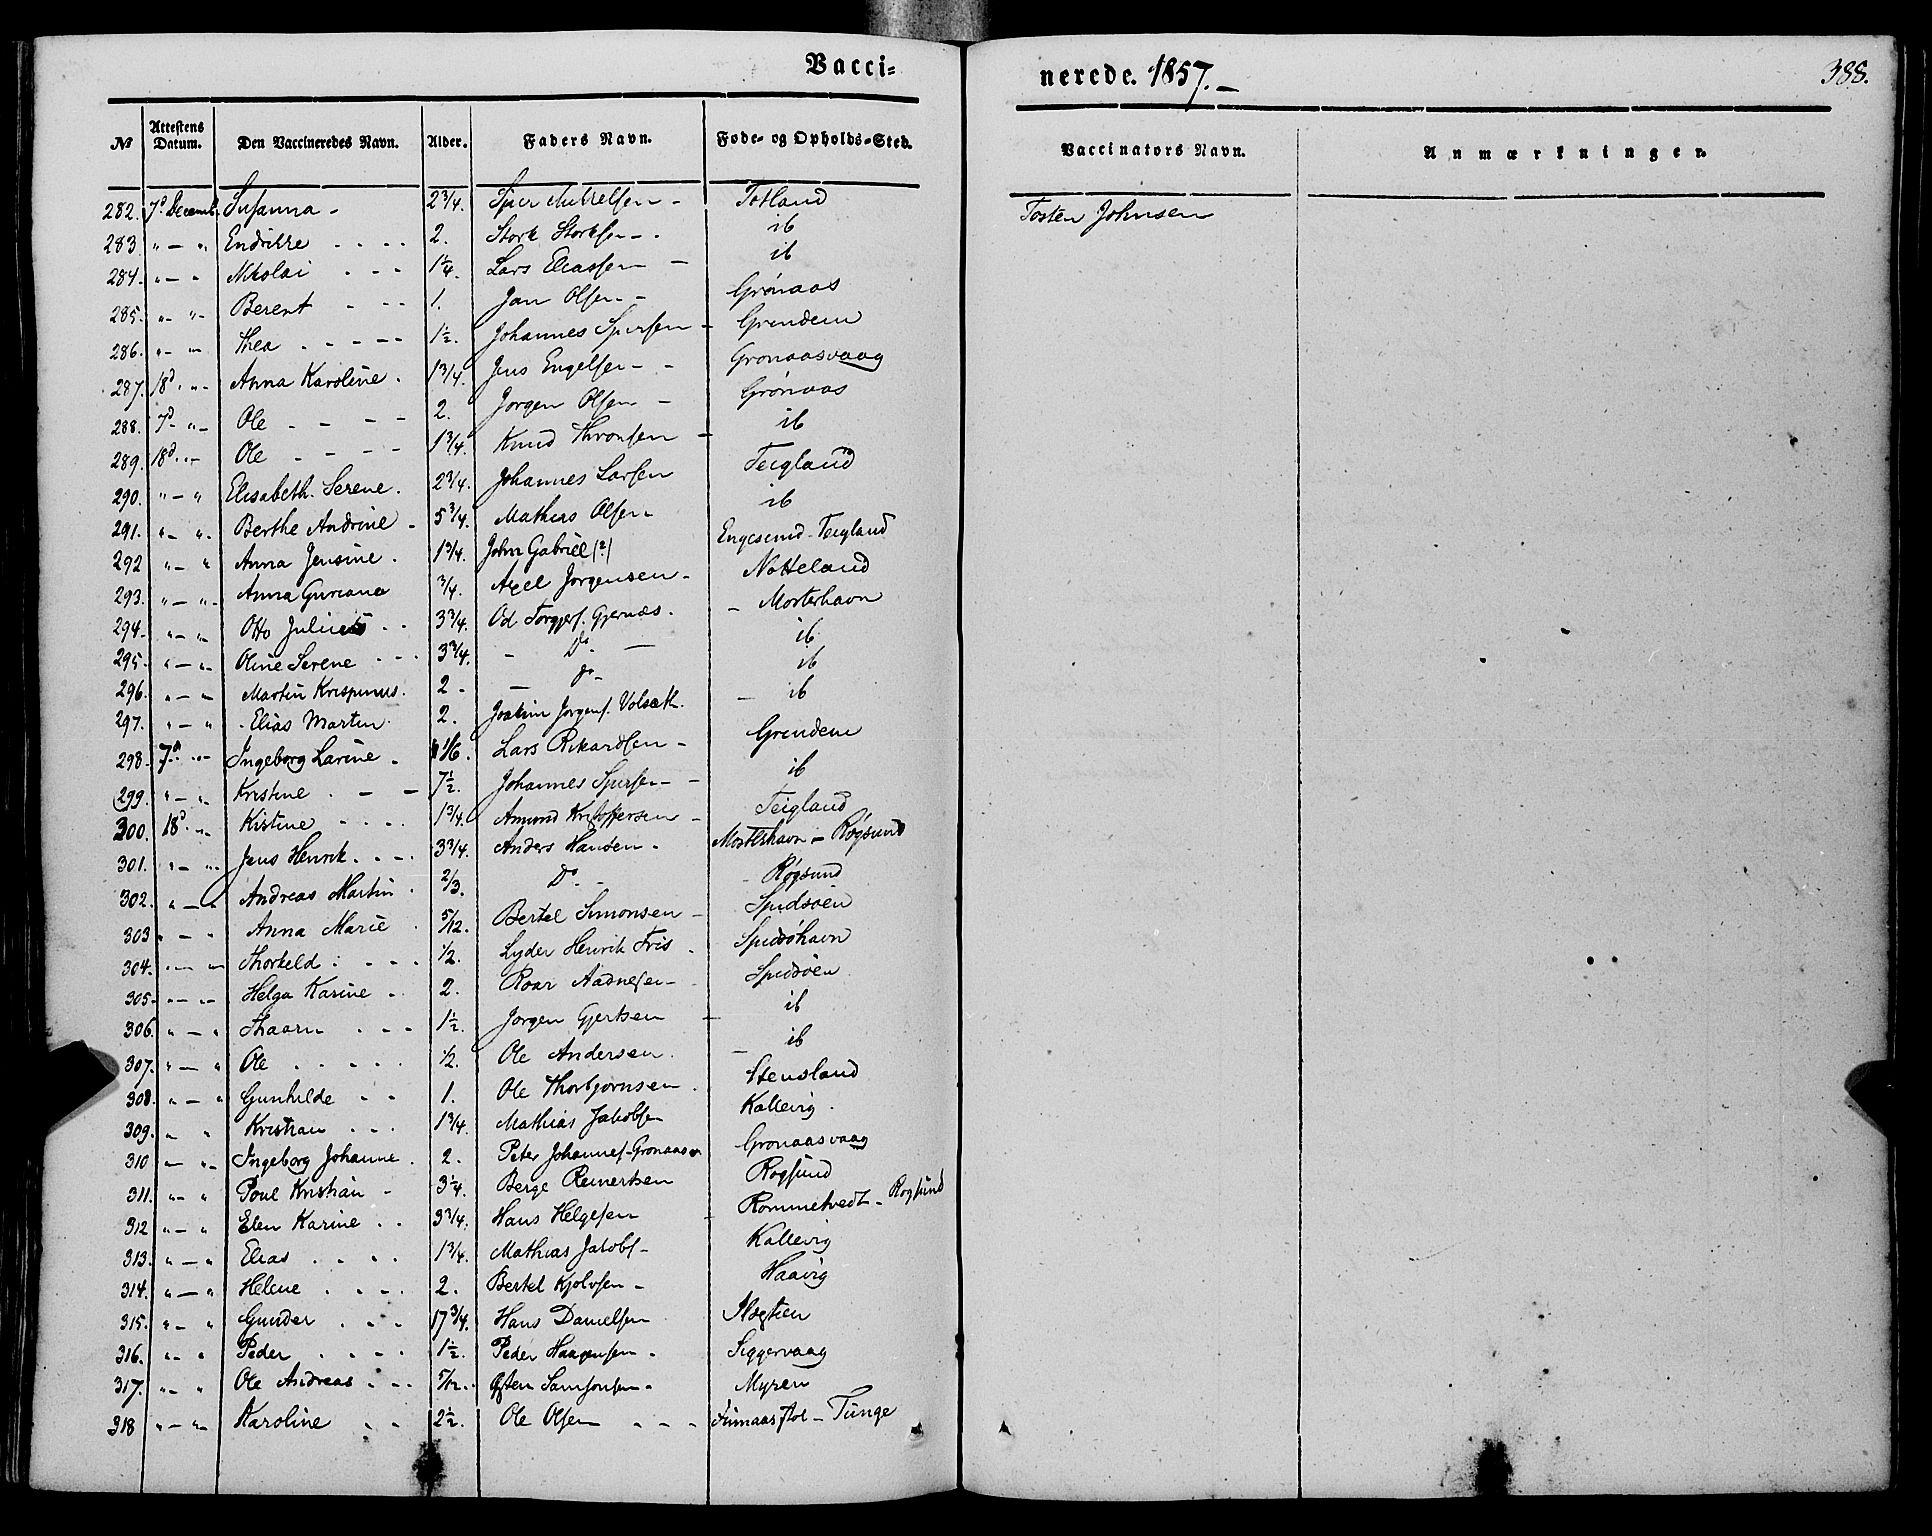 Vacci= nerede. 1857.— 388.
№ Attestens Datum. Den Vaccineredes Navn. Alder. Faders Navn. Føde- og Opholds-Sted. Vaccinators Navn. Anmærkninger.
282. 7d Decemb. Susanna - 2 3/4. - Totland Tosten Johnsen
283 " — " Endrikke - - - - 2. Stork Storksen - - ib
284. " — " Nikolai - - - 1 1/4. Lars Eliassen — ib
285. " — " Berent - - - 1. Jan Olsen - - Grønaas
286. " — " Thea - - - - - 1 1/2. Johannes Sjursen - Grindem
287. 18d. " - Anna Karoline. 1 3/4. Jens Engelsen - - Grønaasvaag
288. 7d - " - Ole - - - - 2. Jørgen Olsen - Grønaas
289. 18d. " - Ole - - - - 1 3/4. Knud Thronsen - ib
290. " — " Elisabeth. Serene. 2 3/4. Johannes Larsen Teigland
291. " — " Berthe Andrine - 5 3/4. Mathias Olsen - ib
292 " — " Anna Jensine. 1 3/4. John Gabriel (?) Engesund - Teigland
293. " — " Anna Guriana 3/4. Axel Jørgensen - Notteland
294. " — " Otto Julius - - 3 3/4. Od Torgjers. Gjernæs. - Mosterhavn
295. " — " Oline Serene - - - 3 3/4. - Do. — ib
296. " — " Martin Krispinus. 2 - — do - ib
297. " — " Elias Martin. 2. Joakim Jørgens. Volsæth. — ib
298. 7d. " - Ingeborg Larine - 1/6. Lars Rikardsen - Grindem
299. " — " Kristine. — — 7 1/2. Johannes Sjursen - - ib
300. 18d. " - Kistine - - - - 1 3/4. Amund Kristoffersen - Teigland
301. " — " Jens Henrik. - - - 3 3/4. Anders Hansen - Mosterhavn - Røgsund
302. " — " Andreas Martin. 2/3. Do. - - Røgsund
303 " — " Anna Marie. 5/12. Bertel Simonsen - Spidsøen
304. " — " Thorkeld: - - - 1/2. Lyder Henrik Friis. Spidsøhavn
305. " — " Helga Karine - - 2. Roar Aadnesen - Spidsøen
306. " — " Thaarn - - - 1 1/2. Jørgen Gjertsen - ib
307. " — " Ole - - - - - 1/2. Ole Andersen. — ib
308. " — " Gunhilde - - 1. Ole Thorbjørnsen. Stensland
309. " " Kristian - - - 1 3/4. Mathias Jakobsen Kallevig.
310 — " Ingeborg Johanne. 2. Peter Johannes. Grønaasv Grønaasvaag
311. " — " Poul Kristian - 3 1/4. Berge Reinertsen Røgsund
312 " — " Elen Karine - - 3 3/4. Hans Helgesen - Rommetvedt - Rogsund
313. " — " Elias - - - - 1 3/4. Mathias Jakobs - Kallevig
314. " — " Helene - - - - 2. Bertel Kjolvsen - Haavig
315. " — " Gunder - - - 17 3/4. Hans Danielsen
316. " — " Peder - - - - 1 1/2. Peder Haagensen - Siggervaag
317. " — " Ole Andreas - - - 5/12. Østen Samsonsen - Myren
318 " — " Karoline - - 2 1/2. Ole Olsen - - - Finnaas Hol - Tunge